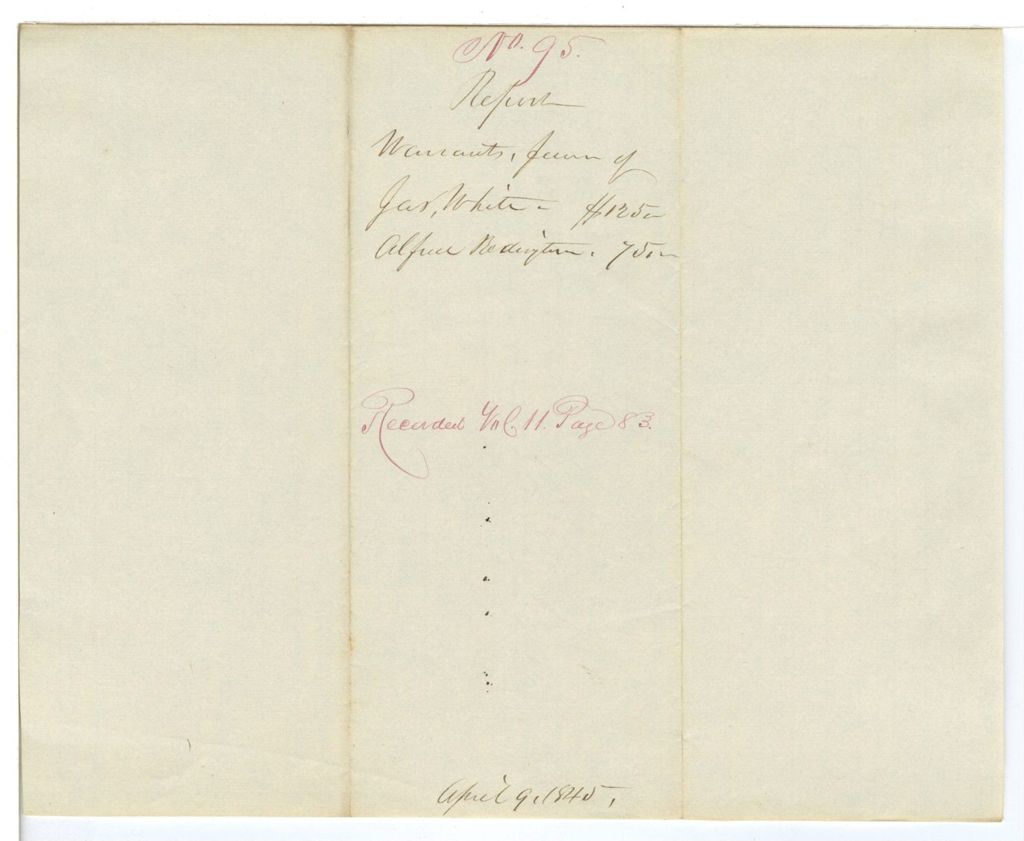 No. 95.
Report
Warrants, favor of
Jas, White - $125-
Alfred Redington. 75.-
Recorded Vol. 11. Page 83.
April 9, 1845,